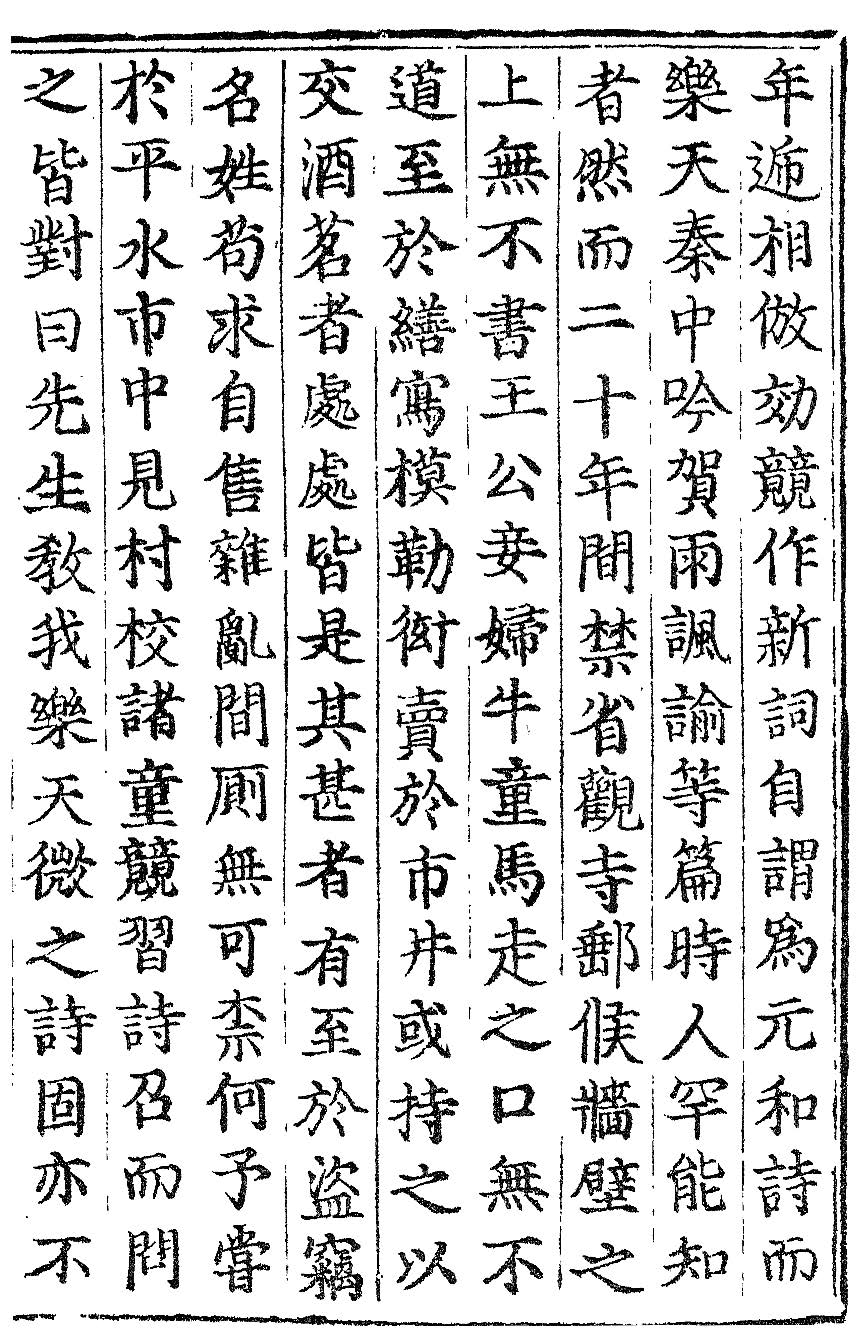 年遞相倣効競作新詞自謂爲元和詩而
樂天秦中吟賀雨諷諭等篇時人罕能知
者然而二十年間禁省觀寺郵候牆壁之
上無不書王公妾婦牛童馬走之口無不
道至於繕寫模勒衒賣於市井或持之以
交酒茗者處處皆是其甚者有至於盜竊
名姓苟求自售雜亂間厠無可柰何予嘗
於平水市中見村校諸童競習詩召而問
之皆對曰先生教我樂天微之詩固亦不